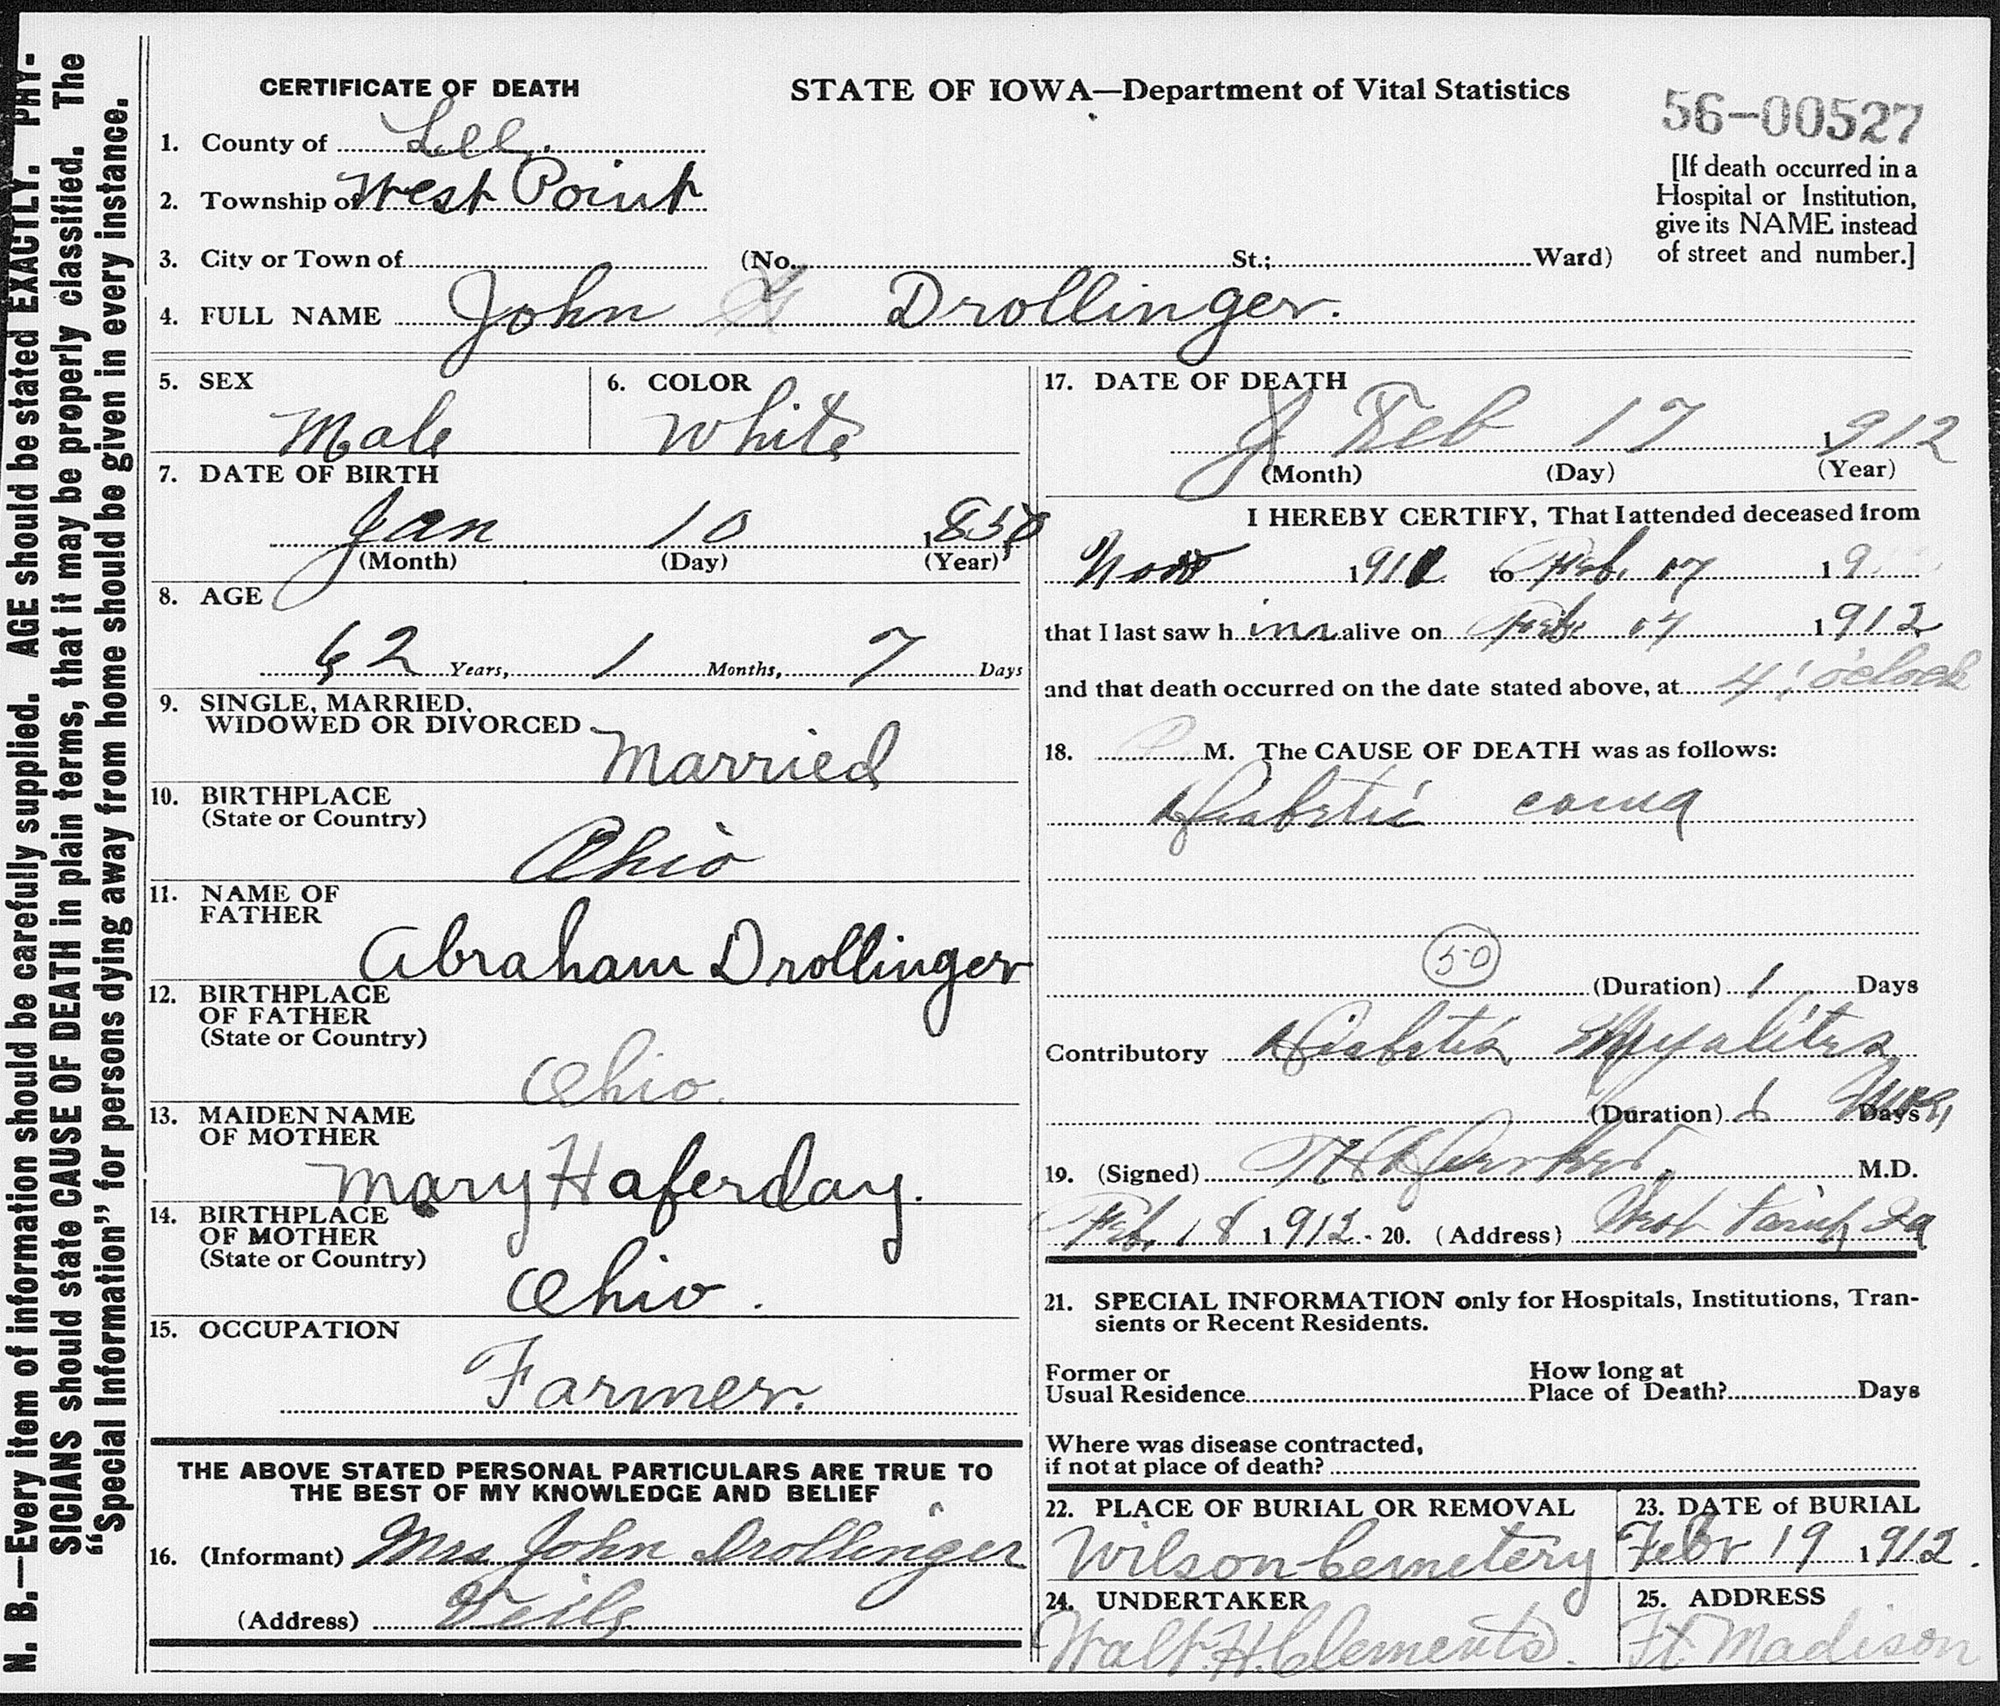 CERTIFICATE OF DEATH
STATE OF IOWA—Department of Vital Statistics
56-00527
[If death occurred in a
Hospital or Institution,
give its NAME instead
of street and number.]
1. County of Lee.
2. Township of West Point
3. City or Town of (No. St.; Ward)
4. FULL NAME John Drollinger.
5. SEX Male
6. COLOR White
7. DATE OF BIRTH
Jan 10 1850
(Month) (Day) (Year)
8. AGE
62 Years, 1 Months, 7 Days
9. SINGLE, MARRIED,
WIDOWED OR DIVORCED
Married
10. BIRTHPLACE
(State or Country)
Ohio
11. NAME OF
FATHER
Abraham Drollinger
12. BIRTHPLACE
OF FATHER
(State or Country)
Ohio.
13. MAIDEN NAME
OF MOTHER
Mary Haferday.
14. BIRTHPLACE
OF MOTHER
(State or Country)
Ohio.
15. OCCUPATION
Farmer.
THE ABOVE STATED PERSONAL PARTICULARS ARE TRUE TO
THE BEST OF MY KNOWLEDGE AND BELIEF
16. (Informant) Mrs John Drollinger
(Address)
17. DATE OF DEATH
Feb 17 1912
(Month) (Day) (Year)
I HEREBY CERTIFY, That I attended deceased from
1911 to Feb. 17 19
that I last saw h im alive on Feb. 17 1912
and that death occurred on the date stated above, at 4 o'clock
18. P. M. The CAUSE OF DEATH was as follows:
Diabetic coma
50
(Duration) 1 Days
Contributory Diabetic
(Duration) Days
19. (Signed) M.D.
Feb. 18 1912. 20. (Address) West Point, Ia
21. SPECIAL INFORMATION only for Hospitals, Institutions, Tran-
sients or Recent Residents.
Former or
Usual Residence
How long at
Place of Death? Days
Where was disease contracted,
if not at place of death?
22. PLACE OF BURIAL OR REMOVAL
Wilson Cemetery
23. DATE of BURIAL
Febr 19 1912.
24. UNDERTAKER
Walt. H. Clements.
25. ADDRESS
Ft. Madison
N. B.—Every item of information should be carefully supplied. AGE should be stated EXACTLY. PHY-
SICIANS should state CAUSE OF DEATH in plain terms, that it may be properly classified. The
“Special Information” for persons dying away from home should be given in every instance.